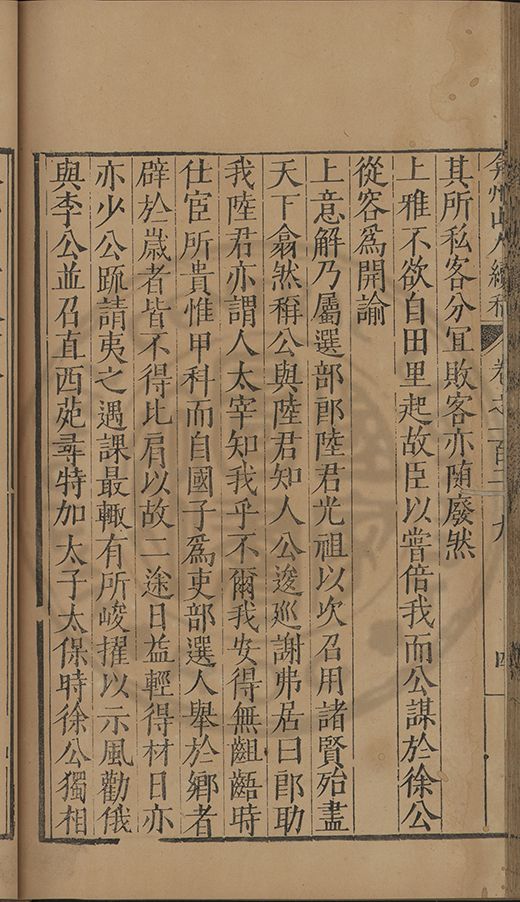 弇州山人續稿 卷之一百二十九 四
其所私客分宜敗客亦隨廢然
上雅不欲自田里起故臣以嘗倍我而公謀於徐公
從容爲開諭
上意解乃屬選部郎陸君光祖以次召用諸賢殆盡
天下翕然稱公與陸君知人公逡巡謝弗居曰郎助
我陸君亦謂人太宰知我乎不爾我安得無齟齬時
仕宦所貴惟甲科而自國子爲吏部選人舉於鄉者
辟於歲者皆不得比肩以故二途日益輕得材日亦
亦少公疏請夷之遇課最輙有所峻擢以示風勸俄
與李公並召直西苑尋特加太子太保時徐公獨相